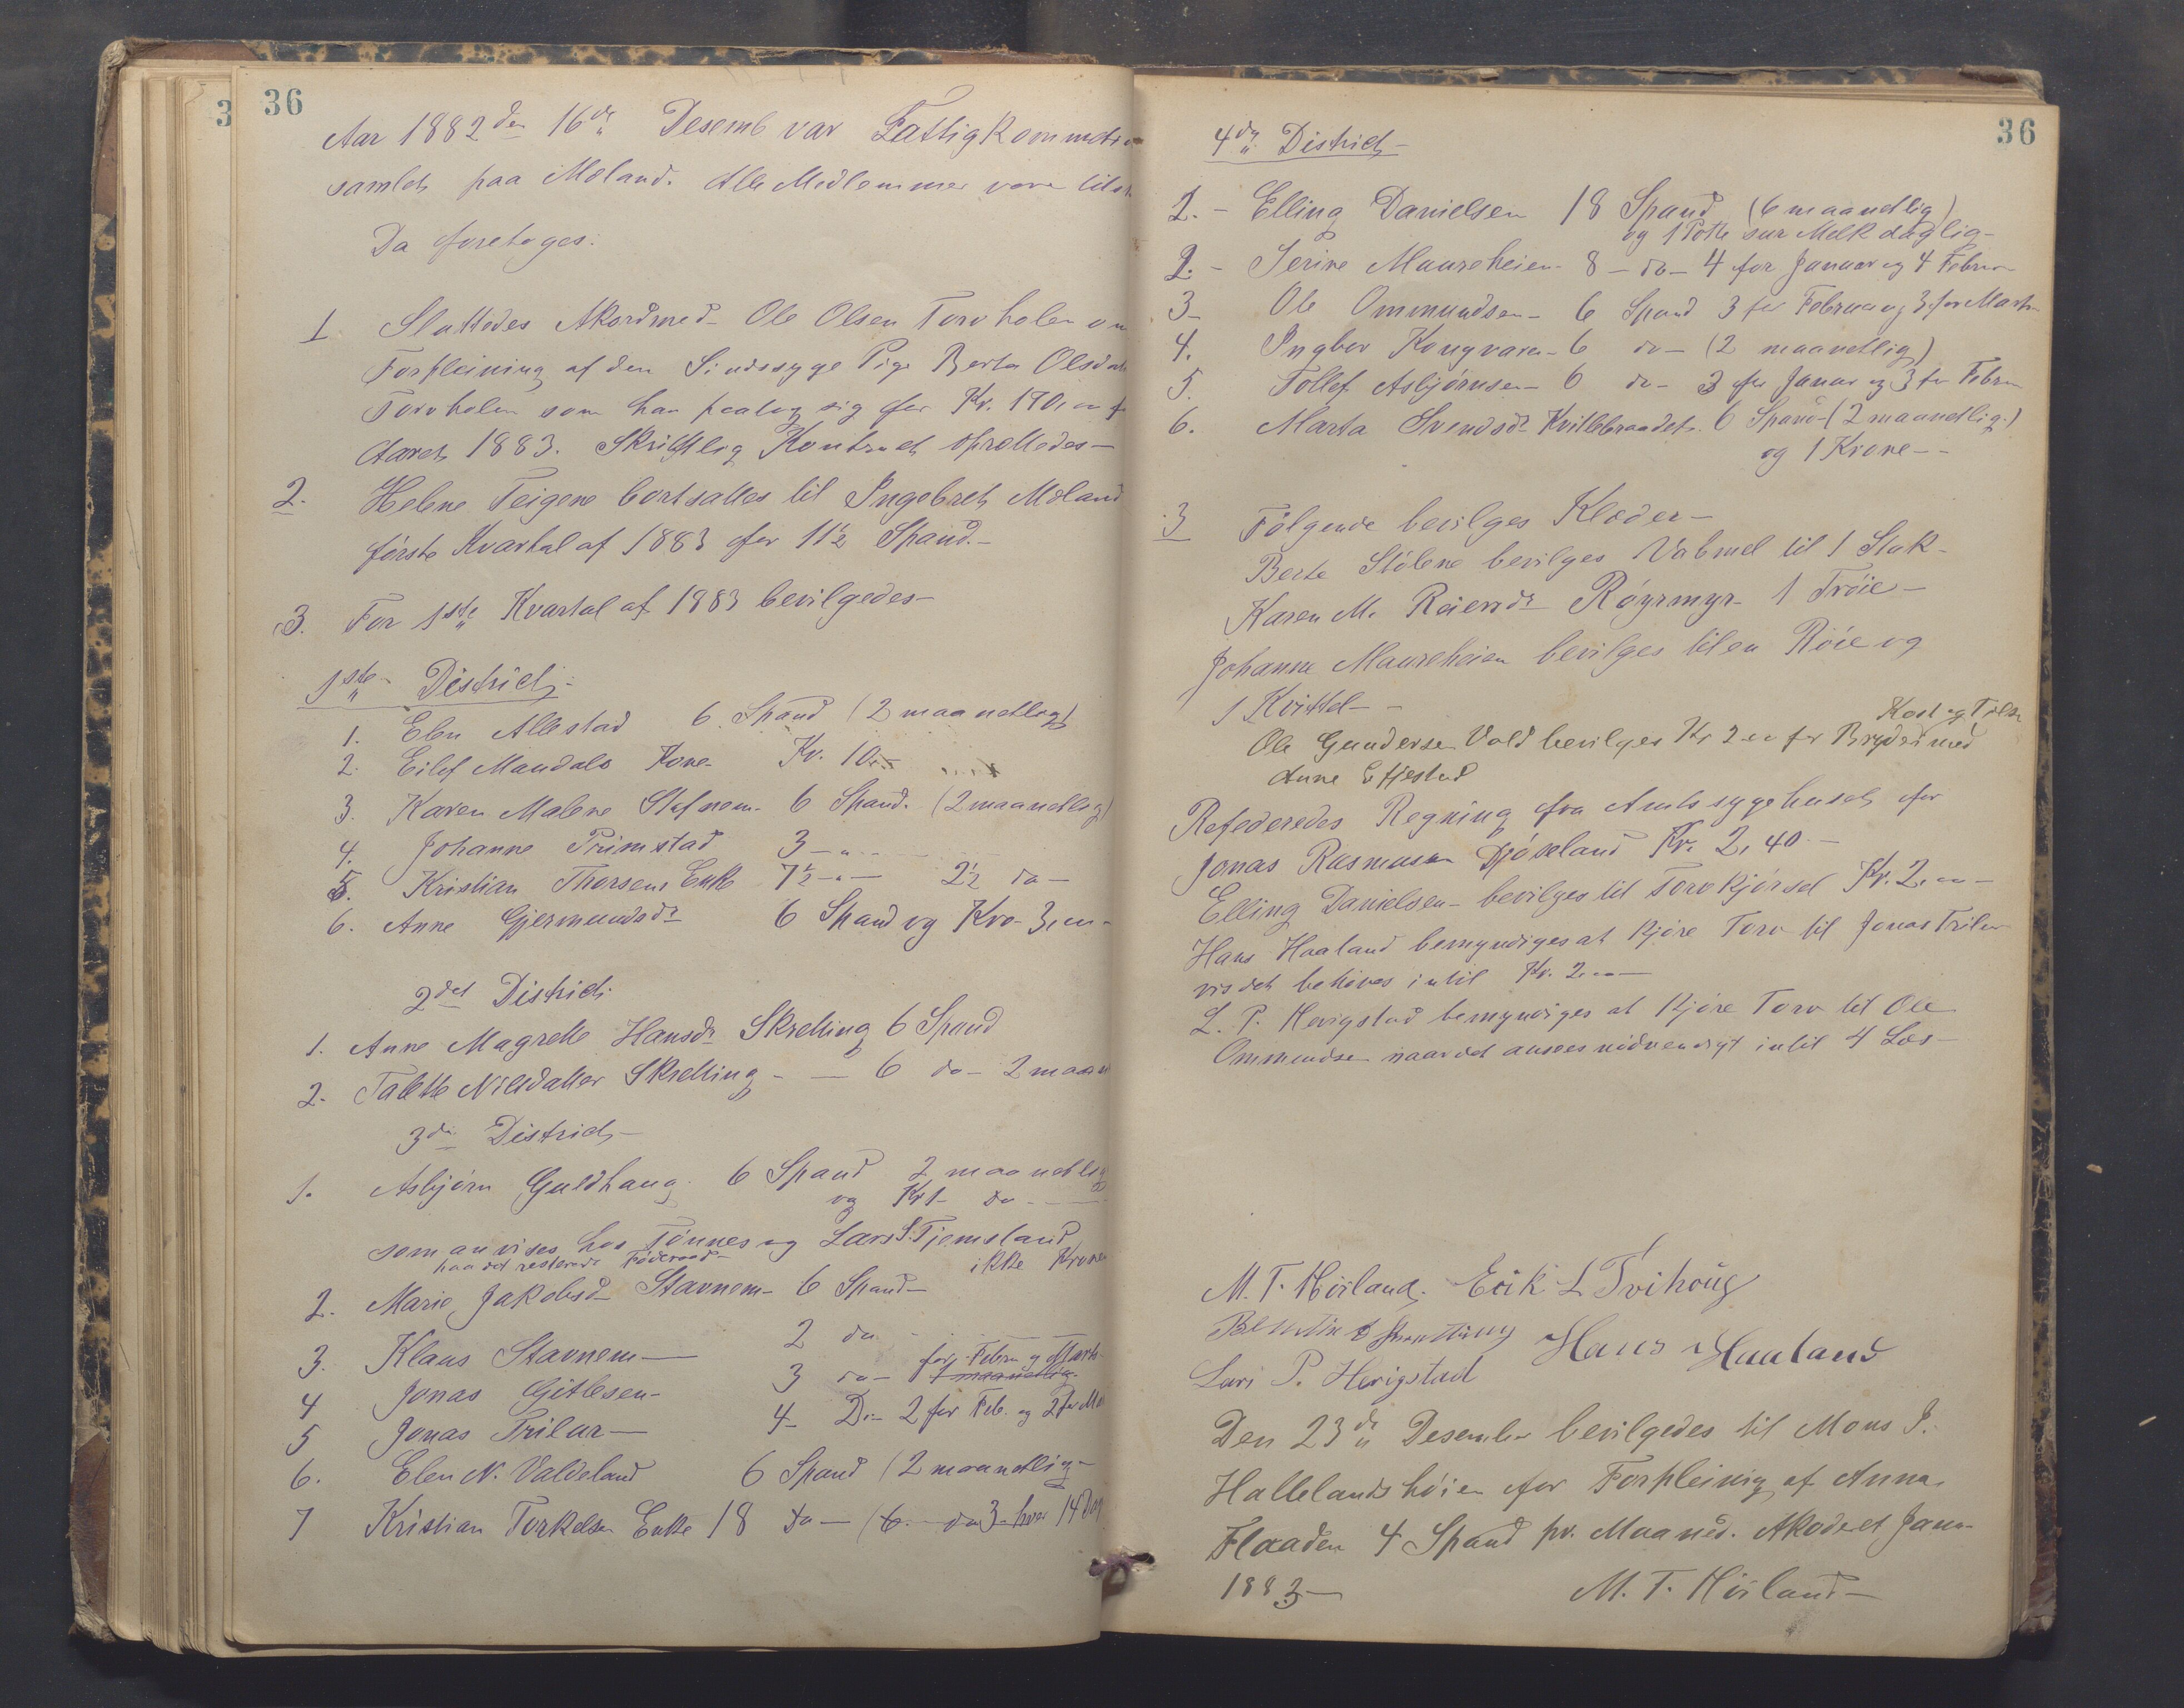 3
36
Aar 1882 den 16de Desemb var Fattigkommis
samlet paa Moland. Alle Medlemmer vare tilst
Da foretoges:
1 Sluttedes Akord med Ole Olsen Torvholen om
Forpleining af den Sindssyge Pige Berta Olsdatt
Torvholen som han paatog sig for Kr. 170,00 f
Aaret 1883. Skriftlig Kontrackt oprettedes—
2. Helene Teigene bortsattes til Ingebret Moland
første Kvartal af 1883 for 11½ Spand.—
3. For 1ste Kvartal af 1883 bevilgedes—
1ste District:
1. Elen Allestad 6 Spand (2 maanetligt)
2. Eilef Maudals Kone Kr. 10.
3. Karen Malene Stafnem 6 Spand. (2 maanetlig)
4. Johanne Primstad 3 — " —
5. Kristian Thorsens Enke 7½ — " — 2½ do—
6. Anne Gjermundsdr 6 Spand og Kro- 3,00-
2det District
1. Anne Magrette Hansdr Skretting 6 Spand
2. Talette Nilsdatter Skretting - — 6 do- 2 maan
3die District—
1. Asbjørn Guldhaug. 6 Spand 2 maanetlig
og Kr 1- do-
som anvises hos Tønnes og Lars S. Tjemsland
paa det resterende Føderaad— ikke Kronen
2. Marie Jakobsd Stavnem- 6 Spand—
3. Klaus Stavnem— 2 do
for Febru og Marts
4 Jonas Gitlesen- 3 do- 1 maanetlig.
5 Jonas Trilur— 4- Do- 2 for Feb. og 2 for Ma
6. Elen N. Valdeland 6 Spand (2 maanetlig-
7 Kristian Torkelsen Enke 18 do- (6.- do 3- hver 14 Dag
36
4de District—
1. - Elling Danielsen 18 Spand (6 maanetlig)
og 1 Potte sur Melk daglig-
2. - Serine Maureheien- 8 - do - 4 for Januar og 4 Febru-
3- Ole Ommundsen- 6 Spand 3 for Februar og 3. for Marts
4. Ingbor Kongvaren- 6 do- (2 maanetlig)
5. Tollef Asbjørnsen- 6 do- 3 for Januar og 3 for Febru
6. Marta Svendsdr Kvillebraadet. 6 Spand- (2 maanetlig.)
og 1 Krone--
3 Følgende bevilges Klæder—
Berte Stølene bevilges Vabmel til 1 Stak-
Karen M. Reiersdr Røyrmyr- 1 Trøie—
Johanne Maureheien bevilges til en Røie og
1 Kvittel--
Kost og Tilsn
Ole Gundersen Vold bevilges Kr 2.00 for Bryderi med
Anne Efjestad
Refederedes Regning fra Amtssygehuset for
Jonas Rasmusen Djøseland Kr. 2,40.—
Elling Danielsen- bevilges til Torvkjørsel Kr. 2.00—
Hans Haaland bemyndiges at kjøre Torv til Jonas Trilur
vis det behøves intil Kr. 2.00—
L. P. Herigstad bemyndiges at kjøre Torv til Ole
Ommundsen naar det ansees nødvendigt intil 4 Læs—
M. T. Hørland. Erik L Tvihoug
Hans Haaland
Lars P. Herigstad
Den 23de Desember bevilgedes til Mons J.
Hallelandshøien for Forpleinig af Anna
Flaaden 4 Spand pr. Maaned. Akoderet Janu-
1883— M. T. Hørland—